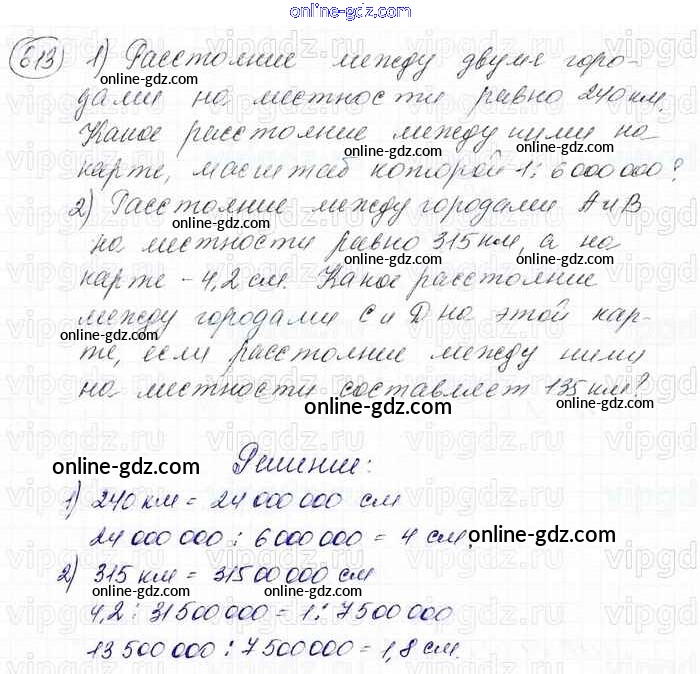 online-gdz.com
613 1) Расстояние между двумя горо-
online-gdz.com
дами на местности равно 240 км.
online-gdz.com
Какое расстояние между ними на
online-gdz.com
карте, масштаб которой 1 : 6 000 000?
2) Расстояние между городами А и В
online-gdz.com
на местности равно 315 км, а на
online-gdz.com
карте - 4,2 см. Какое расстояние
между городами С и D на этой кар-
online-gdz.com
те, если расстояние между ними
на местности составляет 135 км?
online-gdz.com
online-gdz.com
Решение:
1) 240 км = 24 000 000 см
online-gdz.com
24 000 000 : 6 000 000 = 4 см,
online-gdz.com
2) 315 км = 31500 000 см
online-gdz.com
4,2 : 31 500 000 = 1 : 7 500 000
13 500 000 : 7 500 000 = 1,8 см.
online-gdz.com